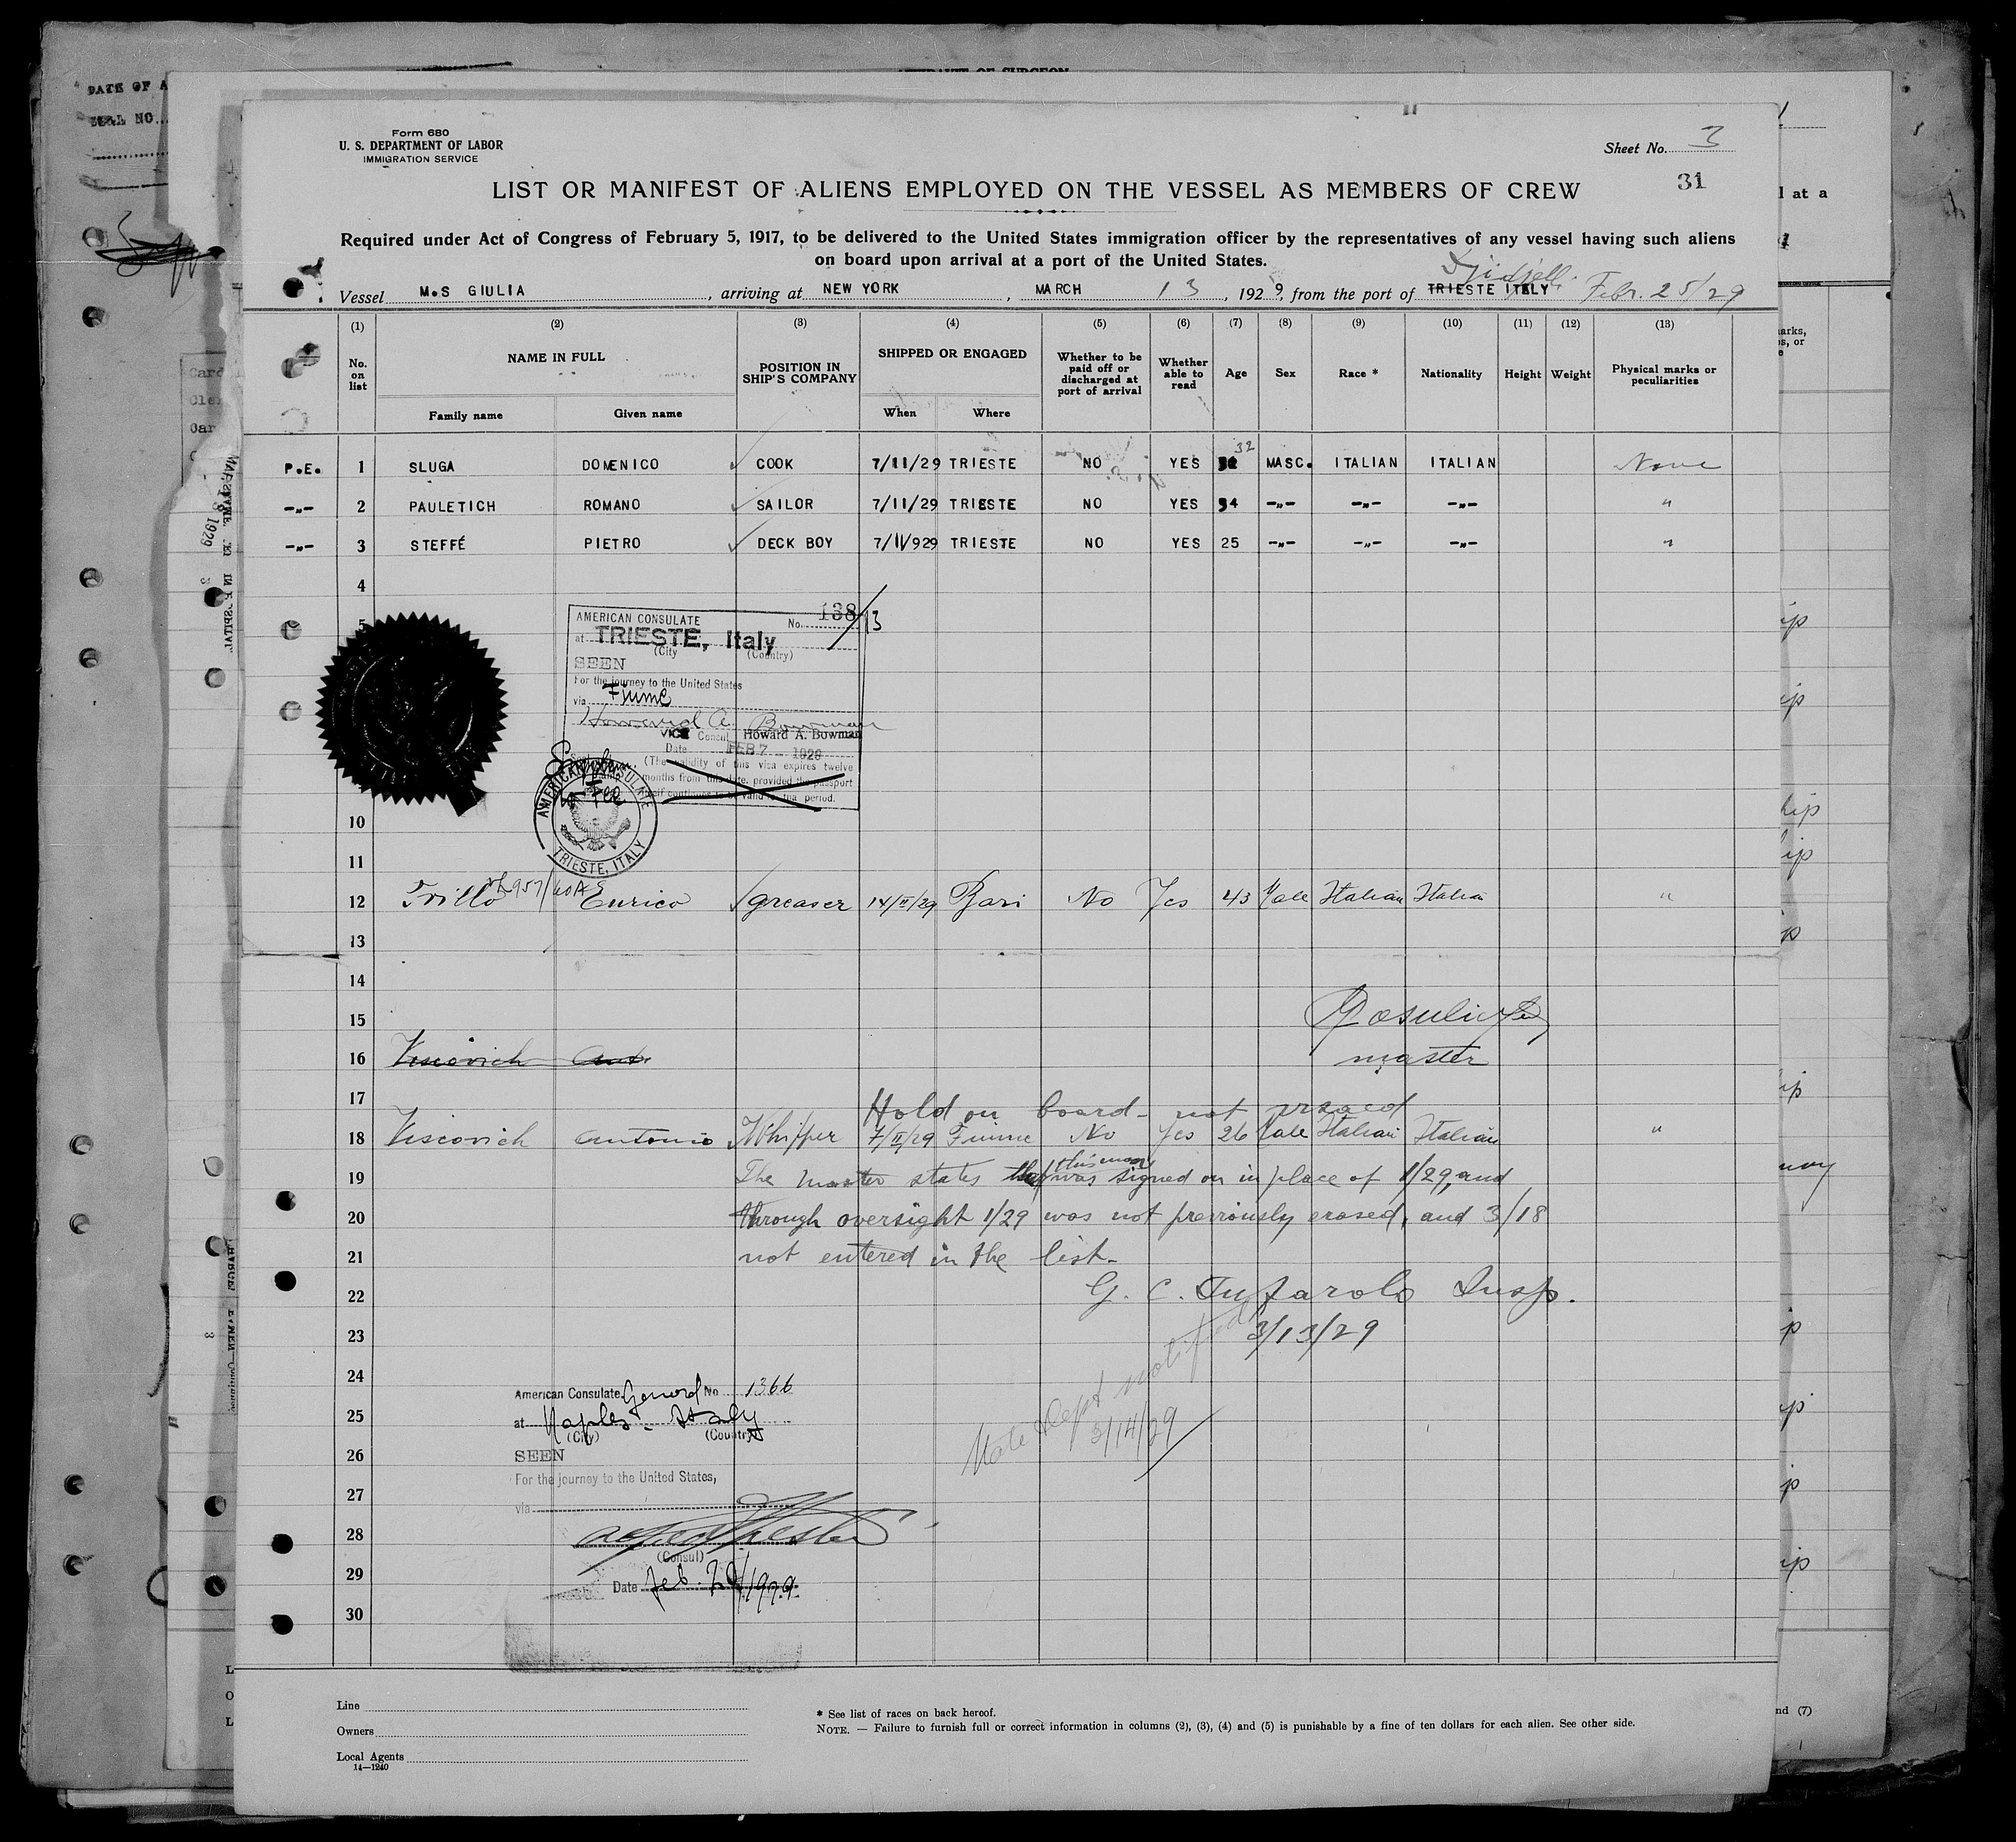 DATE OF A
Form 680
U. S. DEPARTMENT OF LABOR
IMMIGRATION SERVICE
Sheet No. 3
31
LIST OR MANIFEST OF ALIENS EMPLOYED ON THE VESSEL AS MEMBERS OF CREW
Required under Act of Congress of February 5, 1917, to be delivered to the United States immigration officer by the representatives of any vessel having such aliens
on board upon arrival at a port of the United States.
Djidjelli
Vessel M.S GIULIA, arriving at NEW YORK, MARCH 13, 1929, from the port of TRIESTE ITALY Febr. 25/29
(1) (2) (3) (4) (5) (6) (7) (8) (9) (10) (11) (12) (13)
No. on list NAME IN FULL Family name Given name POSITION IN SHIP'S COMPANY SHIPPED OR ENGAGED When Where Whether to be paid off or discharged at port of arrival Whether able to read Age Sex Race * Nationality Height Weight Physical marks or peculiarities
P.E. 1 SLUGA DOMENICO COOK 7/11/29 TRIESTE NO YES 32 MASC. ITALIAN ITALIAN None
-"- 2 PAULETICH ROMANO SAILOR 7/11/29 TRIESTE NO YES 34 -"- -"- -"- "
-"- 3 STEFFÉ PIETRO DECK BOY 7/11/929 TRIESTE NO YES 25 -"- -"- -"- "
4
5
AMERICAN CONSULATE No. 138/13
at TRIESTE, Italy
(City (Country)
SEEN
For the journey to the United States
via Fiume
Howard A. Bowman
VICE Consul Howard A. Bowman
Date FEB 7 1929
(The validity of this visa expires twelve
months from this date, provided the passport
itself continues to be valid
period.
AMERICAN CONSULATE
TRIESTE, ITALY
10
11
12 Trillo Enrico greaser 14/II/29 Bari No Yes 43 Male Italian Italian "
13
14
15
16 Viscovich Ant.
master
17 Hold on board - not visaed
18 Viscovich Antonio Whipper 7/II/29 Fiume No Yes 26 Male Italian Italian "
19 The master states that this man was signed on in place of 1/29, and
20 through oversight 1/29 was not previously erased, and 3/18
21 not entered in the list.
22 G. C. Tufarolo Insp.
23 3/13/29
State Dept notified
3/14/29
24
American Consulate General No 1366
25
at Naples - Italy
(City) (Country)
26
SEEN
For the journey to the United States,
27
via
28
(Consul)
29
Date Feb. 20/1929
30
Line
Owners
Local Agents
14—1240
* See list of races on back hereof.
NOTE. — Failure to furnish full or correct information in columns (2), (3), (4) and (5) is punishable by a fine of ten dollars for each alien. See other side.